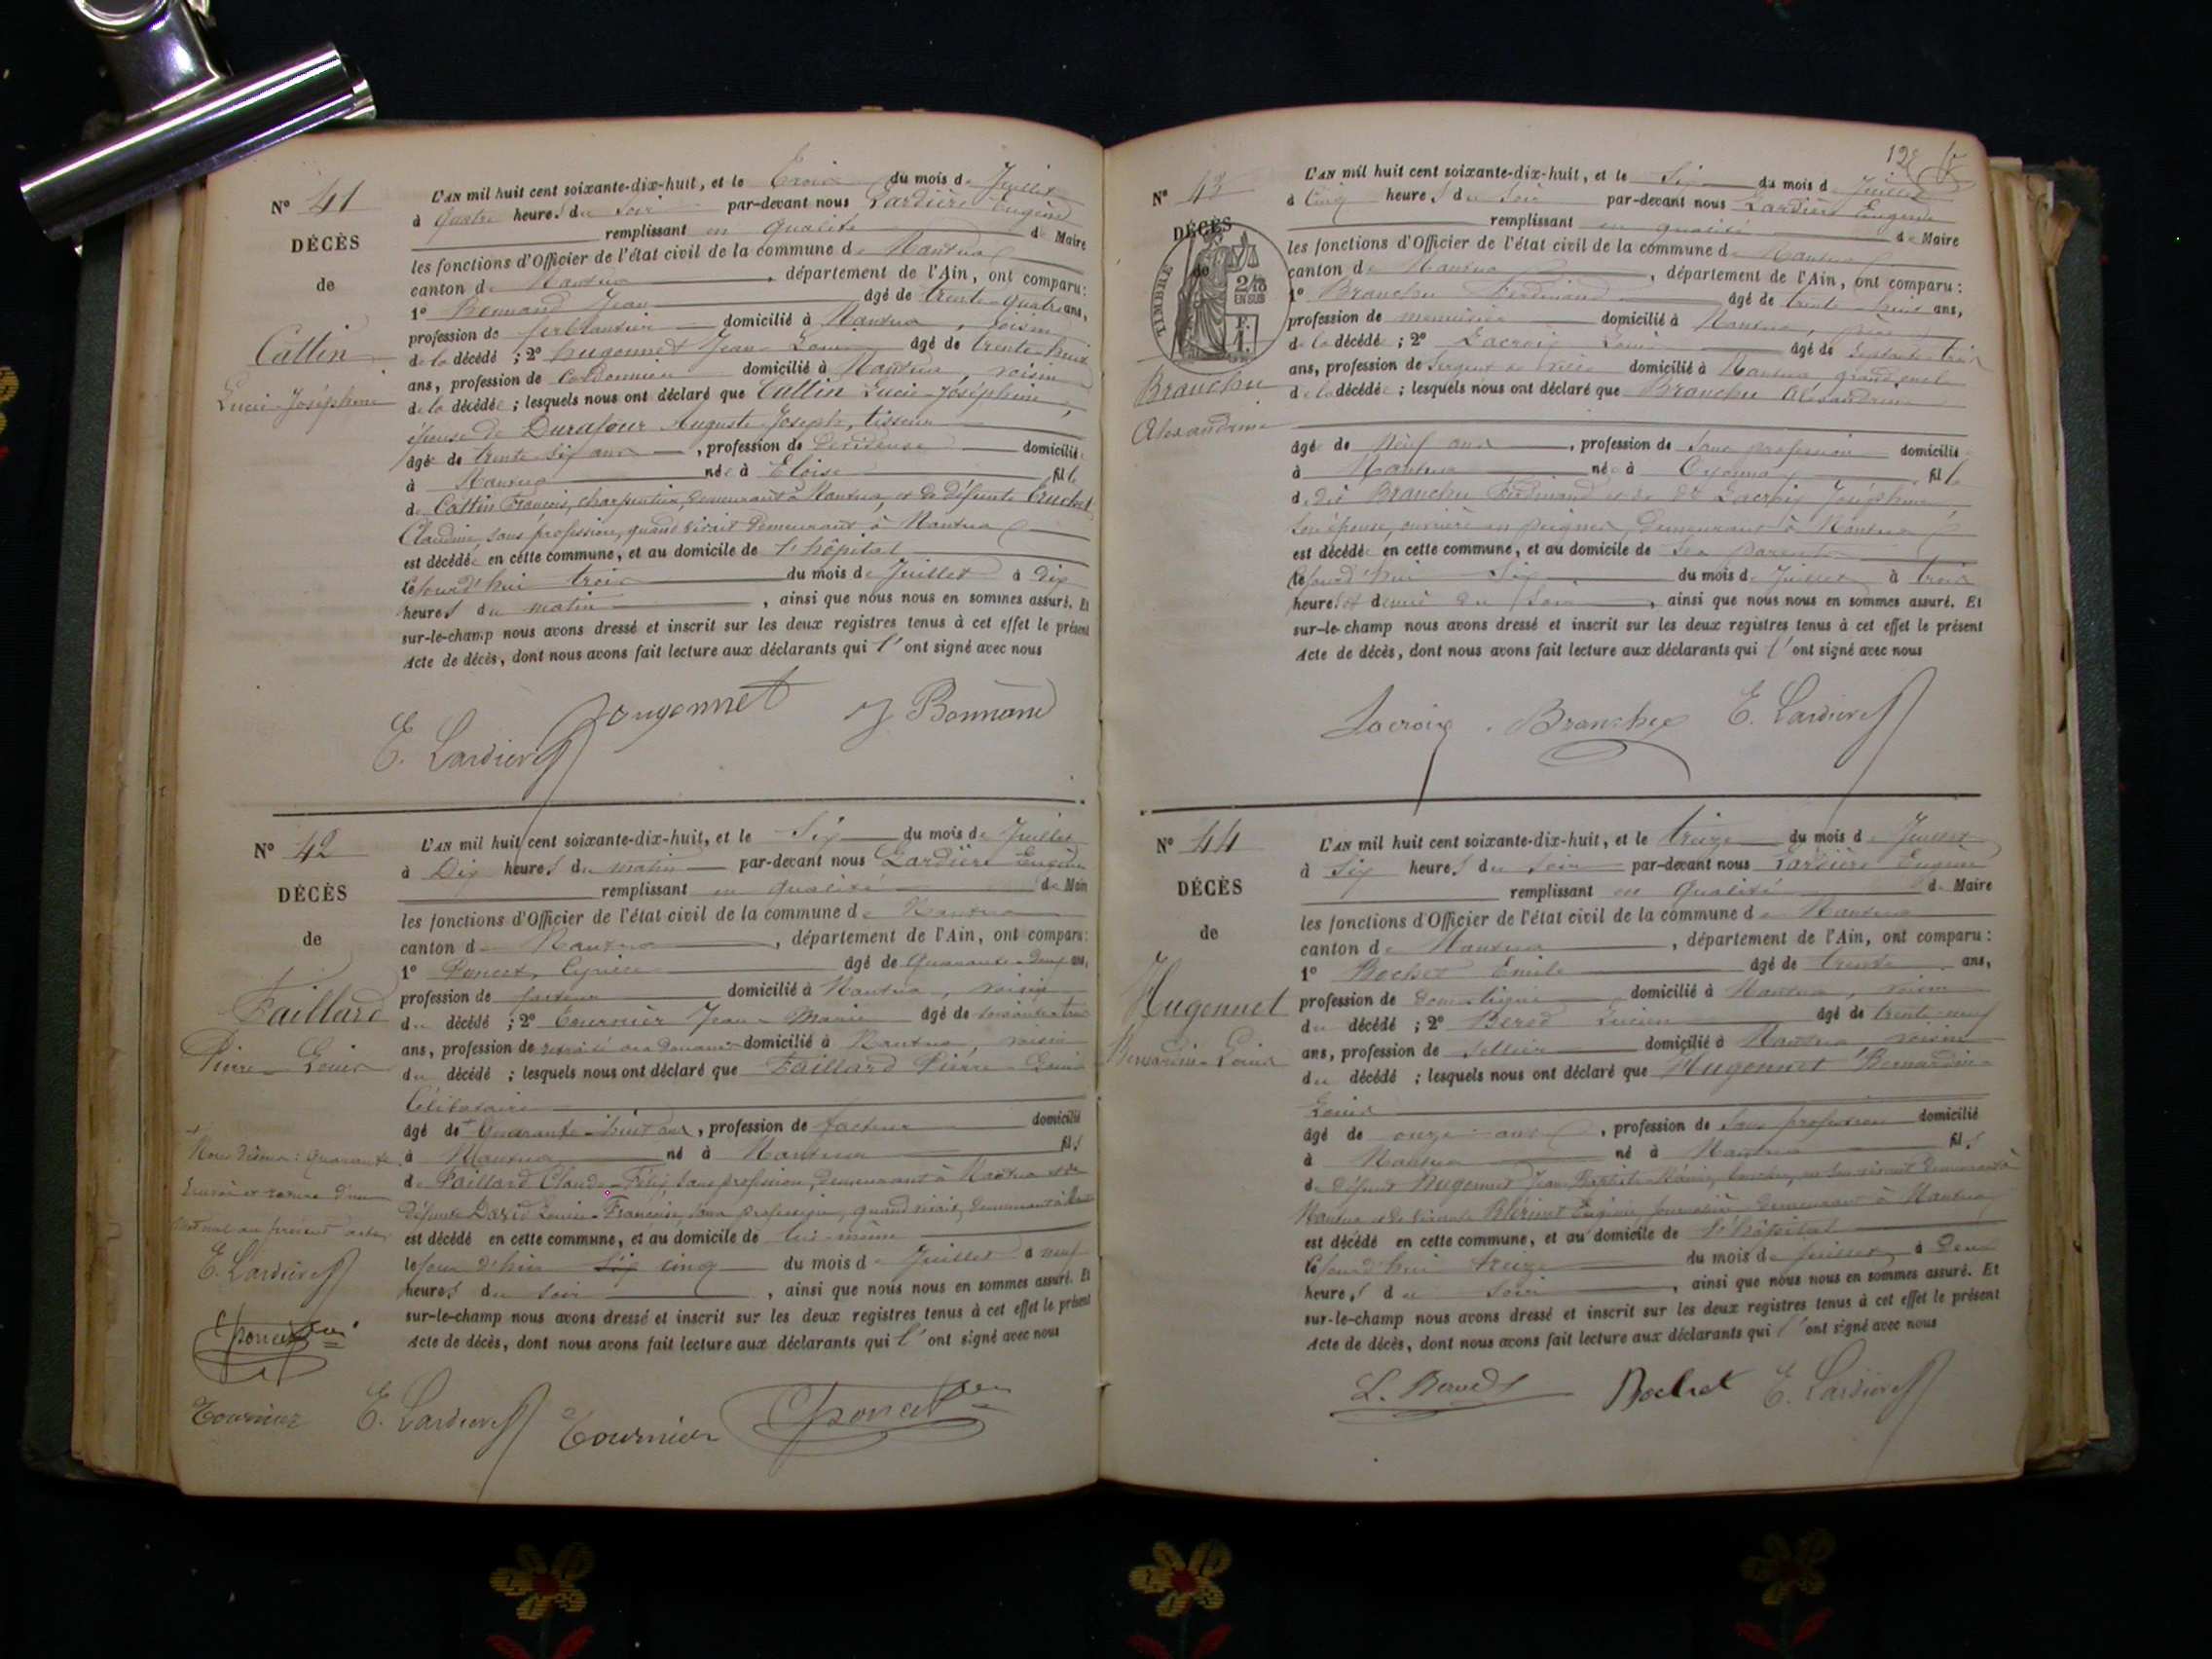 N° 41
DÉCÈS
de
Cattin
Lucie-Joséphine
L'AN mil huit cent soixante-dix-huit, et le Trois du mois de Juillet
à quatre heures du soir par-devant nous Lardière Eugène
remplissant en qualité de Maire
les fonctions d'Officier de l'état civil de la commune de Nantua
canton de Nantua, département de l'Ain, ont comparu :
1° Bonnand Jean âgé de trente-quatre ans,
profession de ferblantier domicilié à Nantua, voisin
de la décédé ; 2° hugonnet Jean-Louis âgé de trente-huit
ans, profession de Cordonnier domicilié à Nantua, voisin
de la décédée ; lesquels nous ont déclaré que Cattin Lucie-Joséphine,
épouse de Durafour Auguste Joseph, tisseur
âgé de trente six ans, profession de Dévideuse domicilié
à Nantua née à Eloise fille
de Cattin François, charpentier, demeurant à Nantua, et de défunte
Claudine, sans profession, quand vivait demeurant à Nantua
est décédée en cette commune, et au domicile de l'hôpital
le jourd'hui trois du mois de Juillet à dix
heures du matin, ainsi que nous nous en sommes assuré. Et
sur-le-champ nous avons dressé et inscrit sur les deux registres tenus à cet effet le présent
Acte de décès, dont nous avons fait lecture aux déclarants qui l'ont signé avec nous
E. Lardière hugonnet J Bonnand
N° 42
DÉCÈS
de
Faillard
Pierre-Louis
L'AN mil huit cent soixante-dix-huit, et le Six du mois de Juillet
à Dix heures du matin par-devant nous Lardière Eugène
remplissant en qualité de Mair
les fonctions d'Officier de l'état civil de la commune de Nantua
canton de Nantua, département de l'Ain, ont comparu :
1° Poncet, Cyprien âgé de Quarante-deux ans,
profession de facteur domicilié à Nantua, voisin
du décédé ; 2° Tournier Jean-Marie âgé de soixante-trois
ans, profession de retraité des douanes domicilié à Nantua, voisin
du décédé ; lesquels nous ont déclaré que Faillard Pierre-Louis
Célibataire
âgé de Quarante-huit ans, profession de facteur domicilié
à Nantua né à Nantua fils
de Faillard Claude-Félix, sans profession, demeurant à Nantua et de
défunte David Louise-Françoise, sans profession, quand vivait, demeurant à
est décédé en cette commune, et au domicile de lui-même
le jour d'hier Six cinq du mois de Juillet à neuf
heures du soir, ainsi que nous nous en sommes assuré. Et
sur-le-champ nous avons dressé et inscrit sur les deux registres tenus à cet effet le présent
Acte de décès, dont nous avons fait lecture aux déclarants qui l'ont signé avec nous
Nous disons : Quarante
au présent acte
E. Lardière
Cponcet
Tournier E. Lardière Tournier Cponcet
128
N° 43
DÉCÈS
de
TIMBRE
2/10
EN SUS
F.
1.
Branchu
Alexandrine
L'AN mil huit cent soixante-dix-huit, et le Six du mois de Juillet
à Cinq heures du soir par-devant nous Lardière Eugène
remplissant en qualité de Maire
les fonctions d'Officier de l'état civil de la commune de Nantua
canton de Nantua, département de l'Ain, ont comparu :
1° Branchu Ferdinand âgé de trente-huit ans,
profession de menuisier domicilié à Nantua, père
de la décédé ; 2° Lacroix Louis âgé de Soixante-trois
ans, profession de Sergent de ville domicilié à Nantua grand oncle
de la décédée ; lesquels nous ont déclaré que Branchu Alexandrine
âgé de Neuf ans, profession de Sans profession domicilié
à Nantua née à Oyonnax fille
de dit Branchu Ferdinand et de De Lacroix Joséphine
son épouse, ouvrière en peignes, demeurant à Nantua
est décédée en cette commune, et au domicile de Ses parents
le jourd'hui Six du mois de Juillet à trois
heures et demie du soir, ainsi que nous nous en sommes assuré. Et
sur-le-champ nous avons dressé et inscrit sur les deux registres tenus à cet effet le présent
Acte de décès, dont nous avons fait lecture aux déclarants qui l'ont signé avec nous
Lacroix Branchu E. Lardière
N° 44
DÉCÈS
de
Hugonnet
Bernardin-Louis
L'AN mil huit cent soixante-dix-huit, et le treize du mois de Juillet
à Six heures du soir par-devant nous Lardière Eugène
remplissant en Qualité de Maire
les fonctions d'Officier de l'état civil de la commune de Nantua
canton de Nantua, département de l'Ain, ont comparu :
1° Bochet Emile âgé de trente ans,
profession de domestique domicilié à Nantua, voisin
du décédé ; 2° Berod Lucien âgé de trente-neuf
ans, profession de Sellier domicilié à Nantua voisin
du décédé ; lesquels nous ont déclaré que Hugonnet Bernardin-
Louis
âgé de onze ans, profession de Sans profession domicilié
à Nantua né à Nantua fils
de défunt Hugonnet Jean-Baptiste en son vivant demeurant à
Nantua et de vivante Eugénie journalière demeurant à Nantua
est décédé en cette commune, et au domicile de l'hôpital
le jourd'hui treize du mois de Juillet à Deux
heures du soir, ainsi que nous nous en sommes assuré. Et
sur-le-champ nous avons dressé et inscrit sur les deux registres tenus à cet effet le présent
Acte de décès, dont nous avons fait lecture aux déclarants qui l'ont signé avec nous
L. Berod Bochet E. Lardière